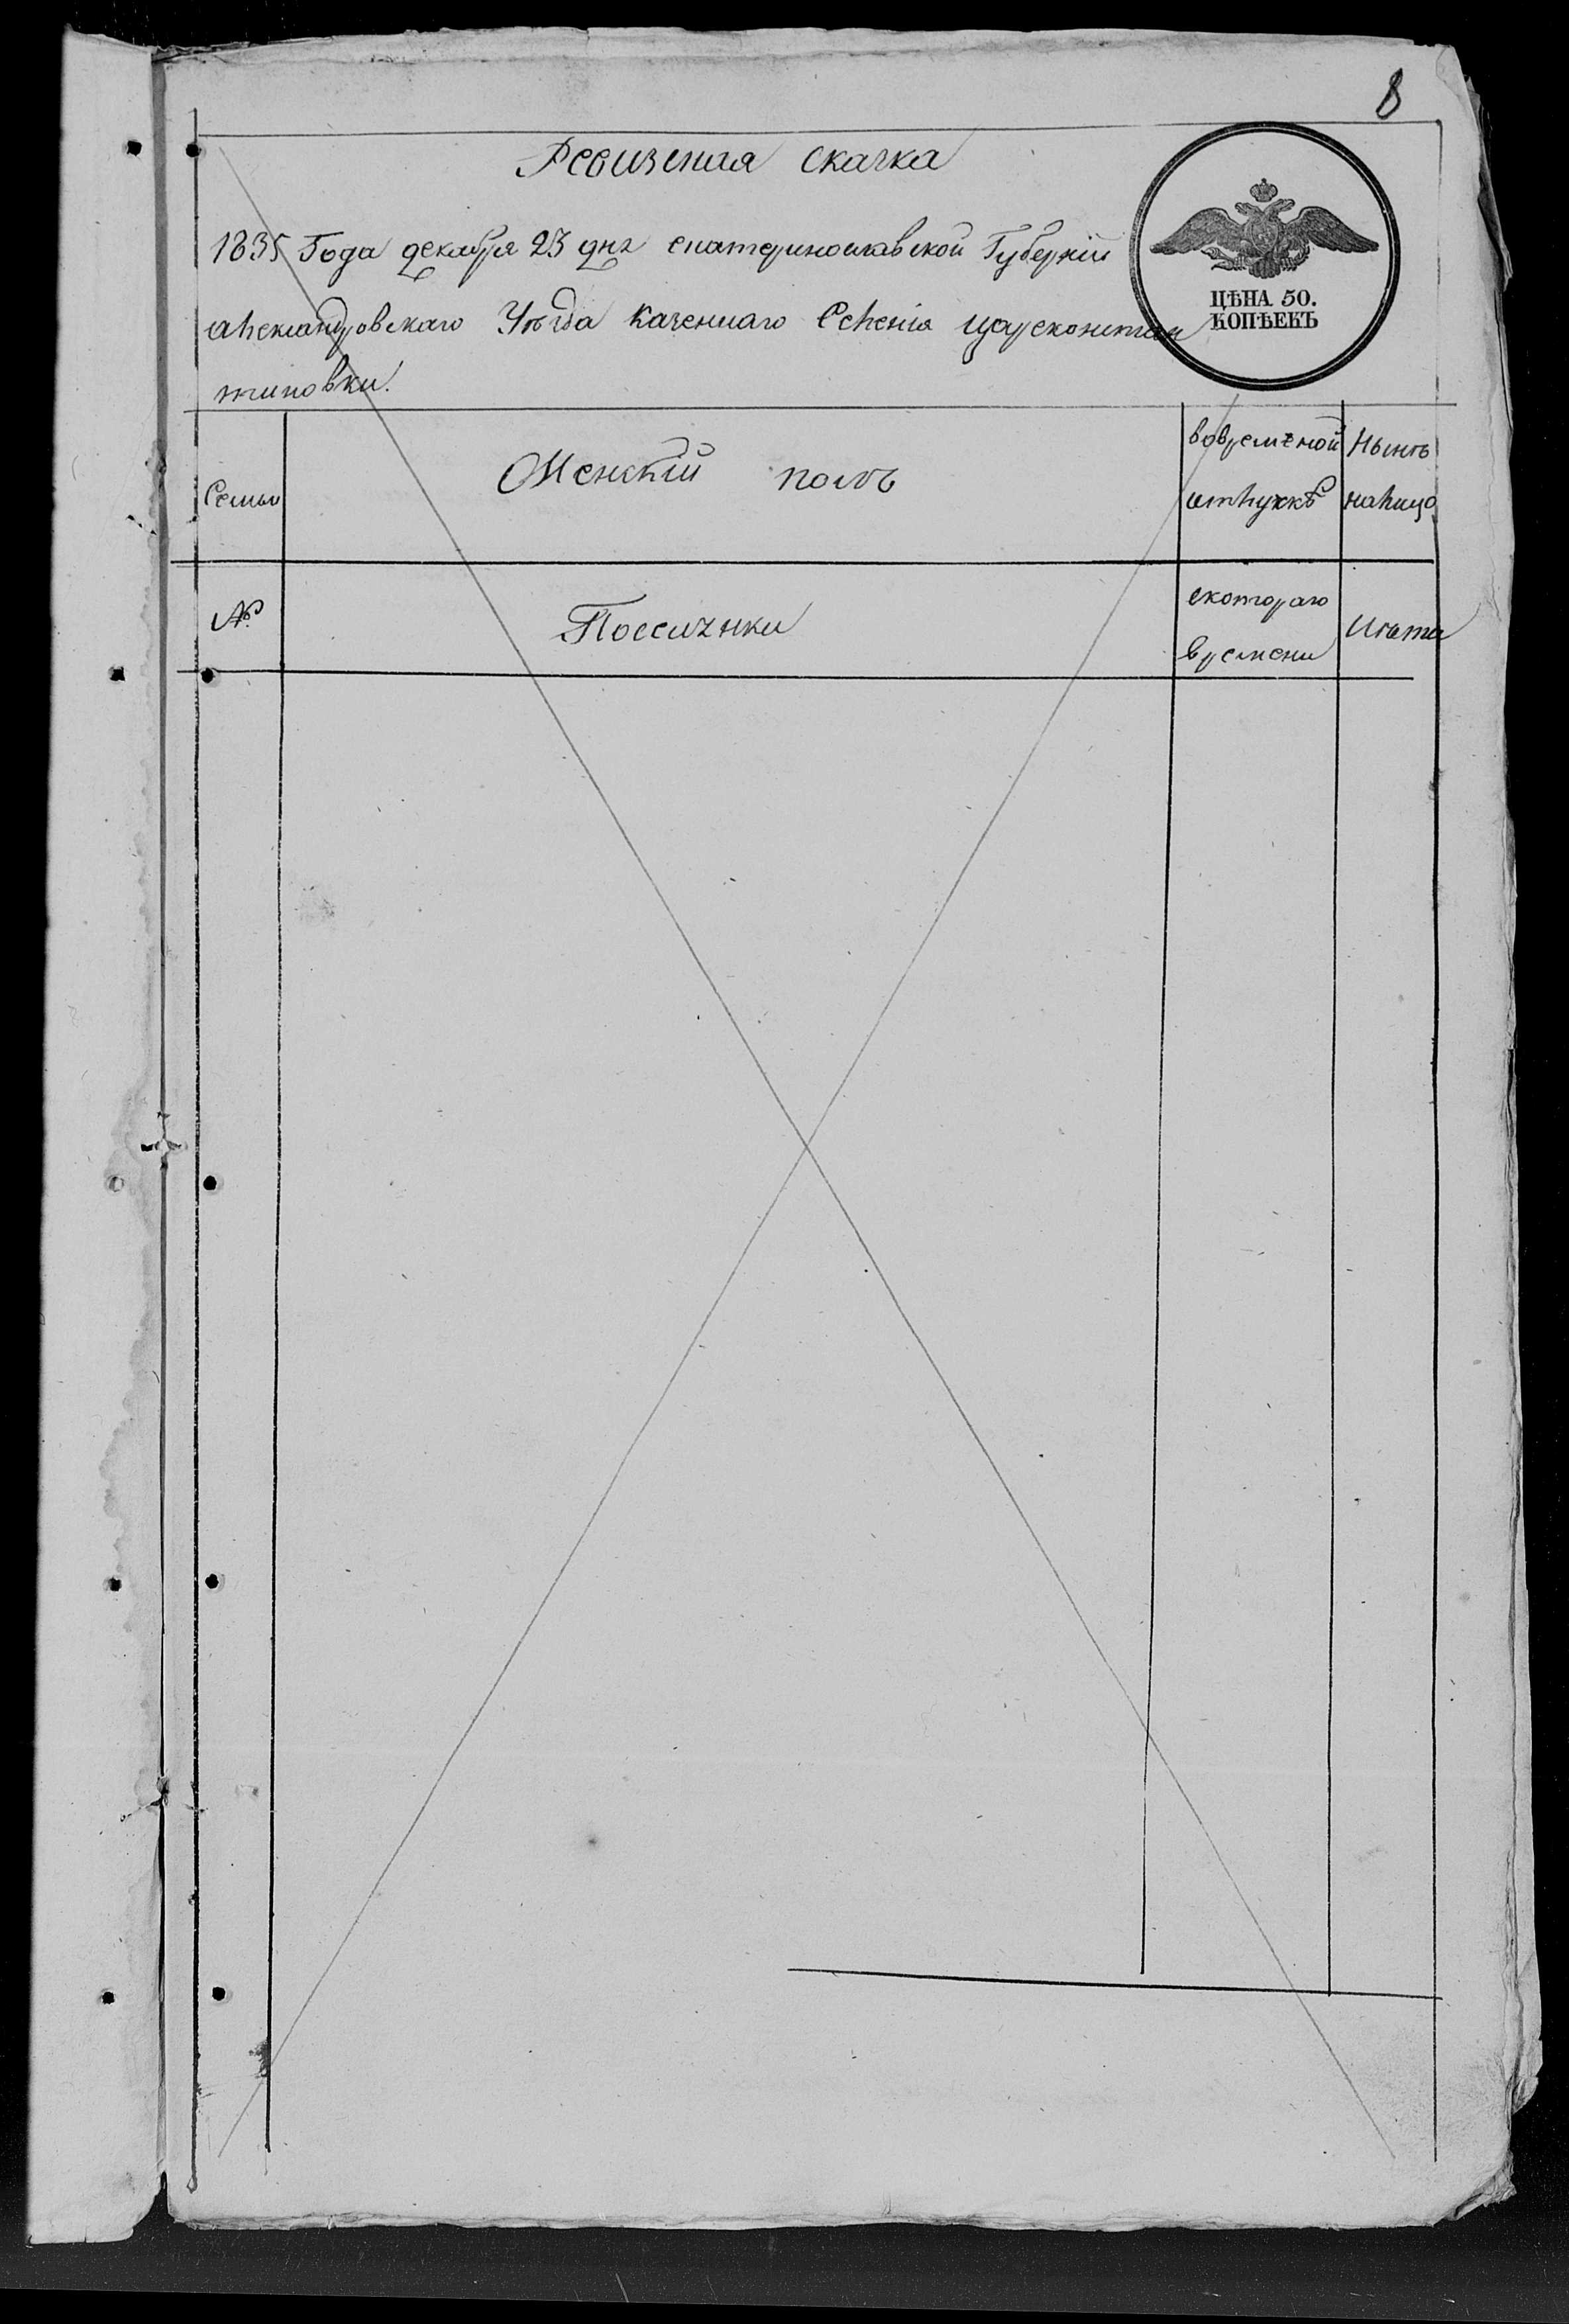 8
Ревизская скаска
1835 Года декабря 23 дня екатеринославской Губернїи
александровскаго Уѣзда казеннаго Селенїя цареконстан
тиновки.
ЦѢНА 50.
КОПѢЕКЪ
Семьи
Женскїй полъ
вовременой
отлучкѣ
Нынѣ
налицо
№
скотораго
времени
Лѣта